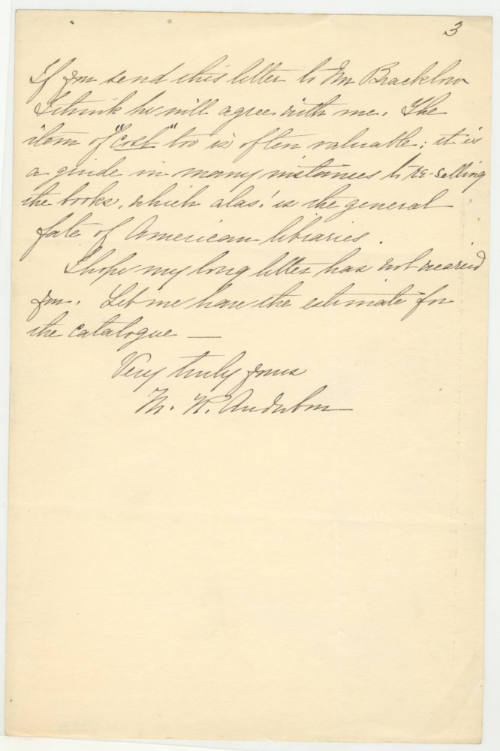 3
If you send this letter to Mr Bracklow
I think he will agree with me. The
item of "Cost" too is often valuable; it is
a guide in many instances to re-selling
the books, which alas! is the general
fate of American libraries.
I hope my long letter has not wearied
you. Let me have the estimate for
the catalogue —
Very truly yours
M. R. Audubon